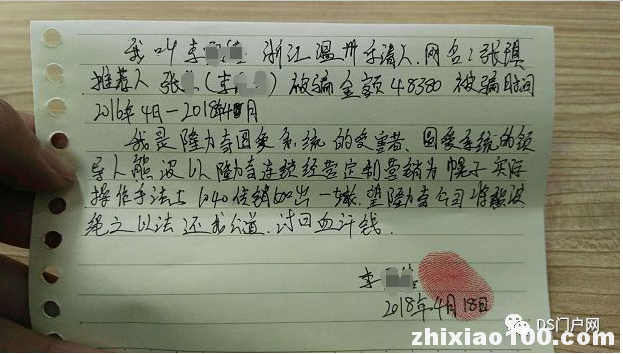 我叫李 浙江温州乐清人.网名:张琪
推荐人 张 (李 ) 被骗金额48380 被骗时间
2016年4月—2018年4月
我是隆力奇国象系统的受害者.国象系统的领
导人熊波以隆力奇连锁经营定制营销为幌子实际
操作手法与1040传销如出一辙.望隆力奇公司将熊波
绳之以法 还我公道.讨回血汗钱.
李
2018年4月18日
DS门户网
zhixiao100.com